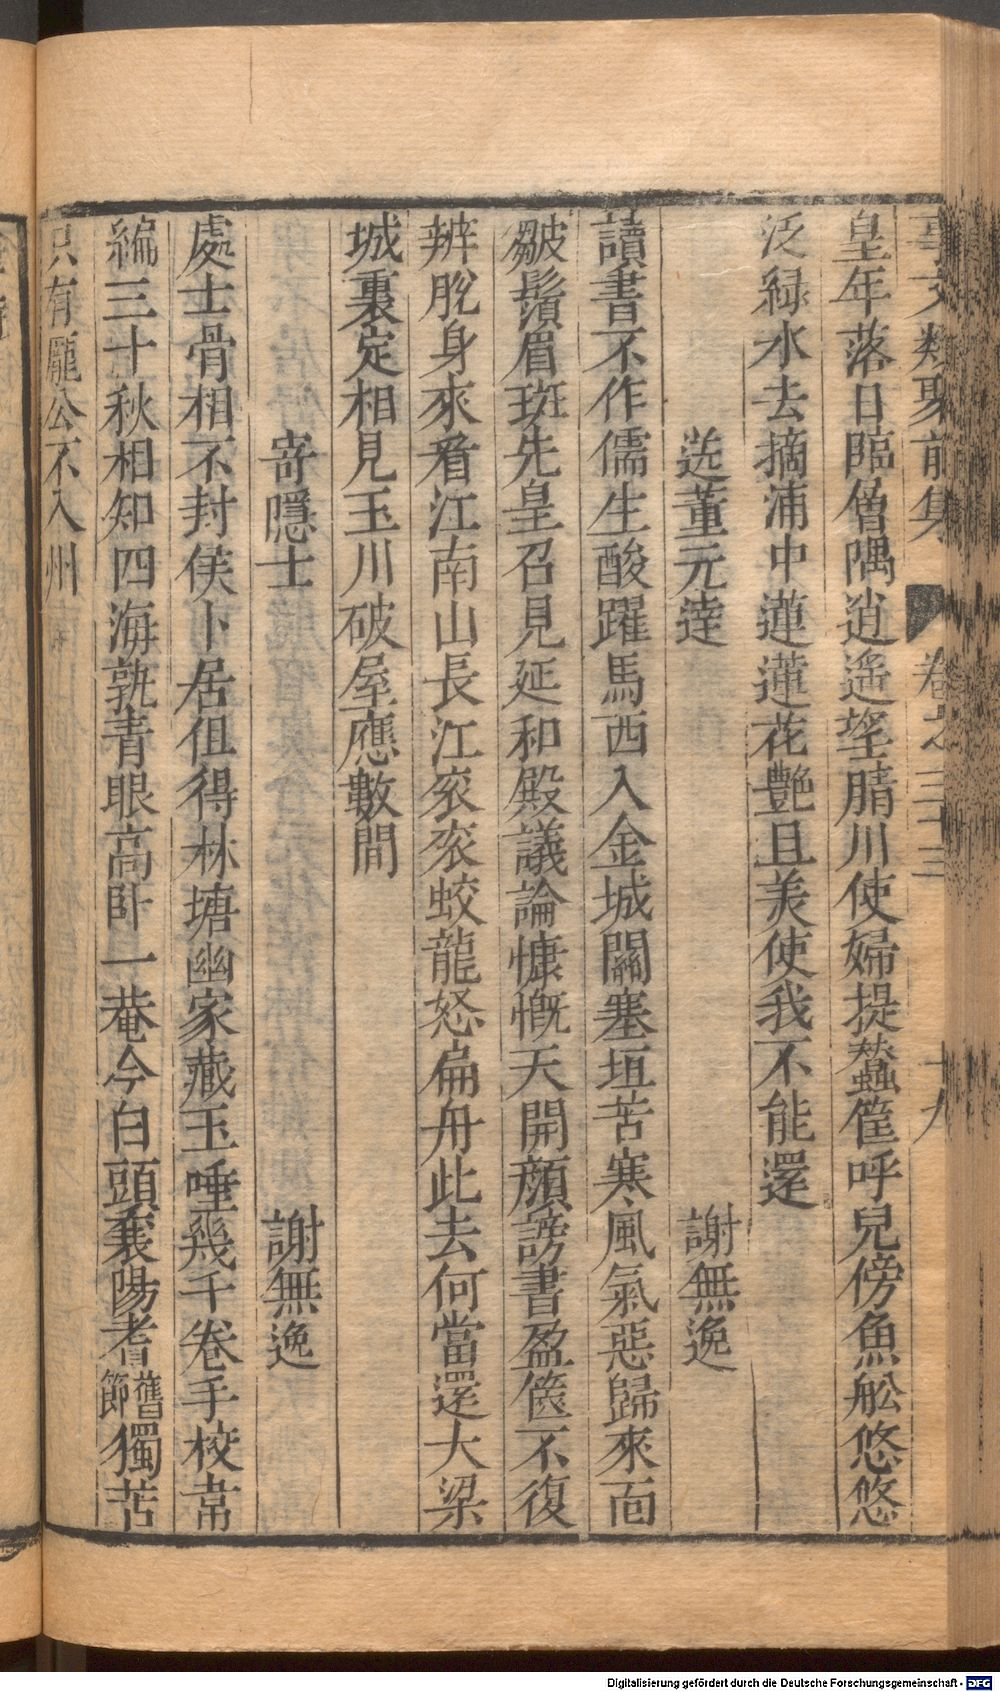 事文類聚前集 卷之三十三 十九
皇年落日臨層隅逍遥望晴川使婦提蠶筐呼兒傍魚舩悠悠
泛緑水去摘浦中蓮蓮花艷且美使我不能還
送董元逹 謝無逸
讀書不作儒生酸躍馬西入金城關塞垣苦寒風氣惡歸來面
皺鬚眉斑先皇召見延和殿議論慷慨天開顔謗書盈篋不復
辨脫身來看江南山長江衮衮蛟龍怒扁舟此去何當還大梁
城裏定相見玉川破屋應數間
寄隱士 謝無逸
處士骨相不封侯卜居但得林塘幽家藏玉唾幾千卷手校韋
編三十秋相知四海孰青眼高卧一菴今白頭襄陽耆舊節獨苦
只有龐公不入州
Digitalisierung gefördert durch die Deutsche Forschungsgemeinschaft - DFG